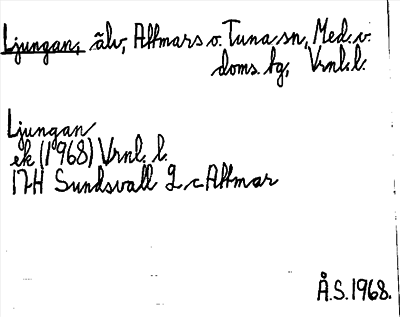 Ljungan, älv, Attmars o. Tuna sn, Med. v.
doms. tg, Vrnl. l.
Ljungan
ek (1968) Vrnl. l.
17H Sundsvall 2 c Attmar
Å.S. 1968.